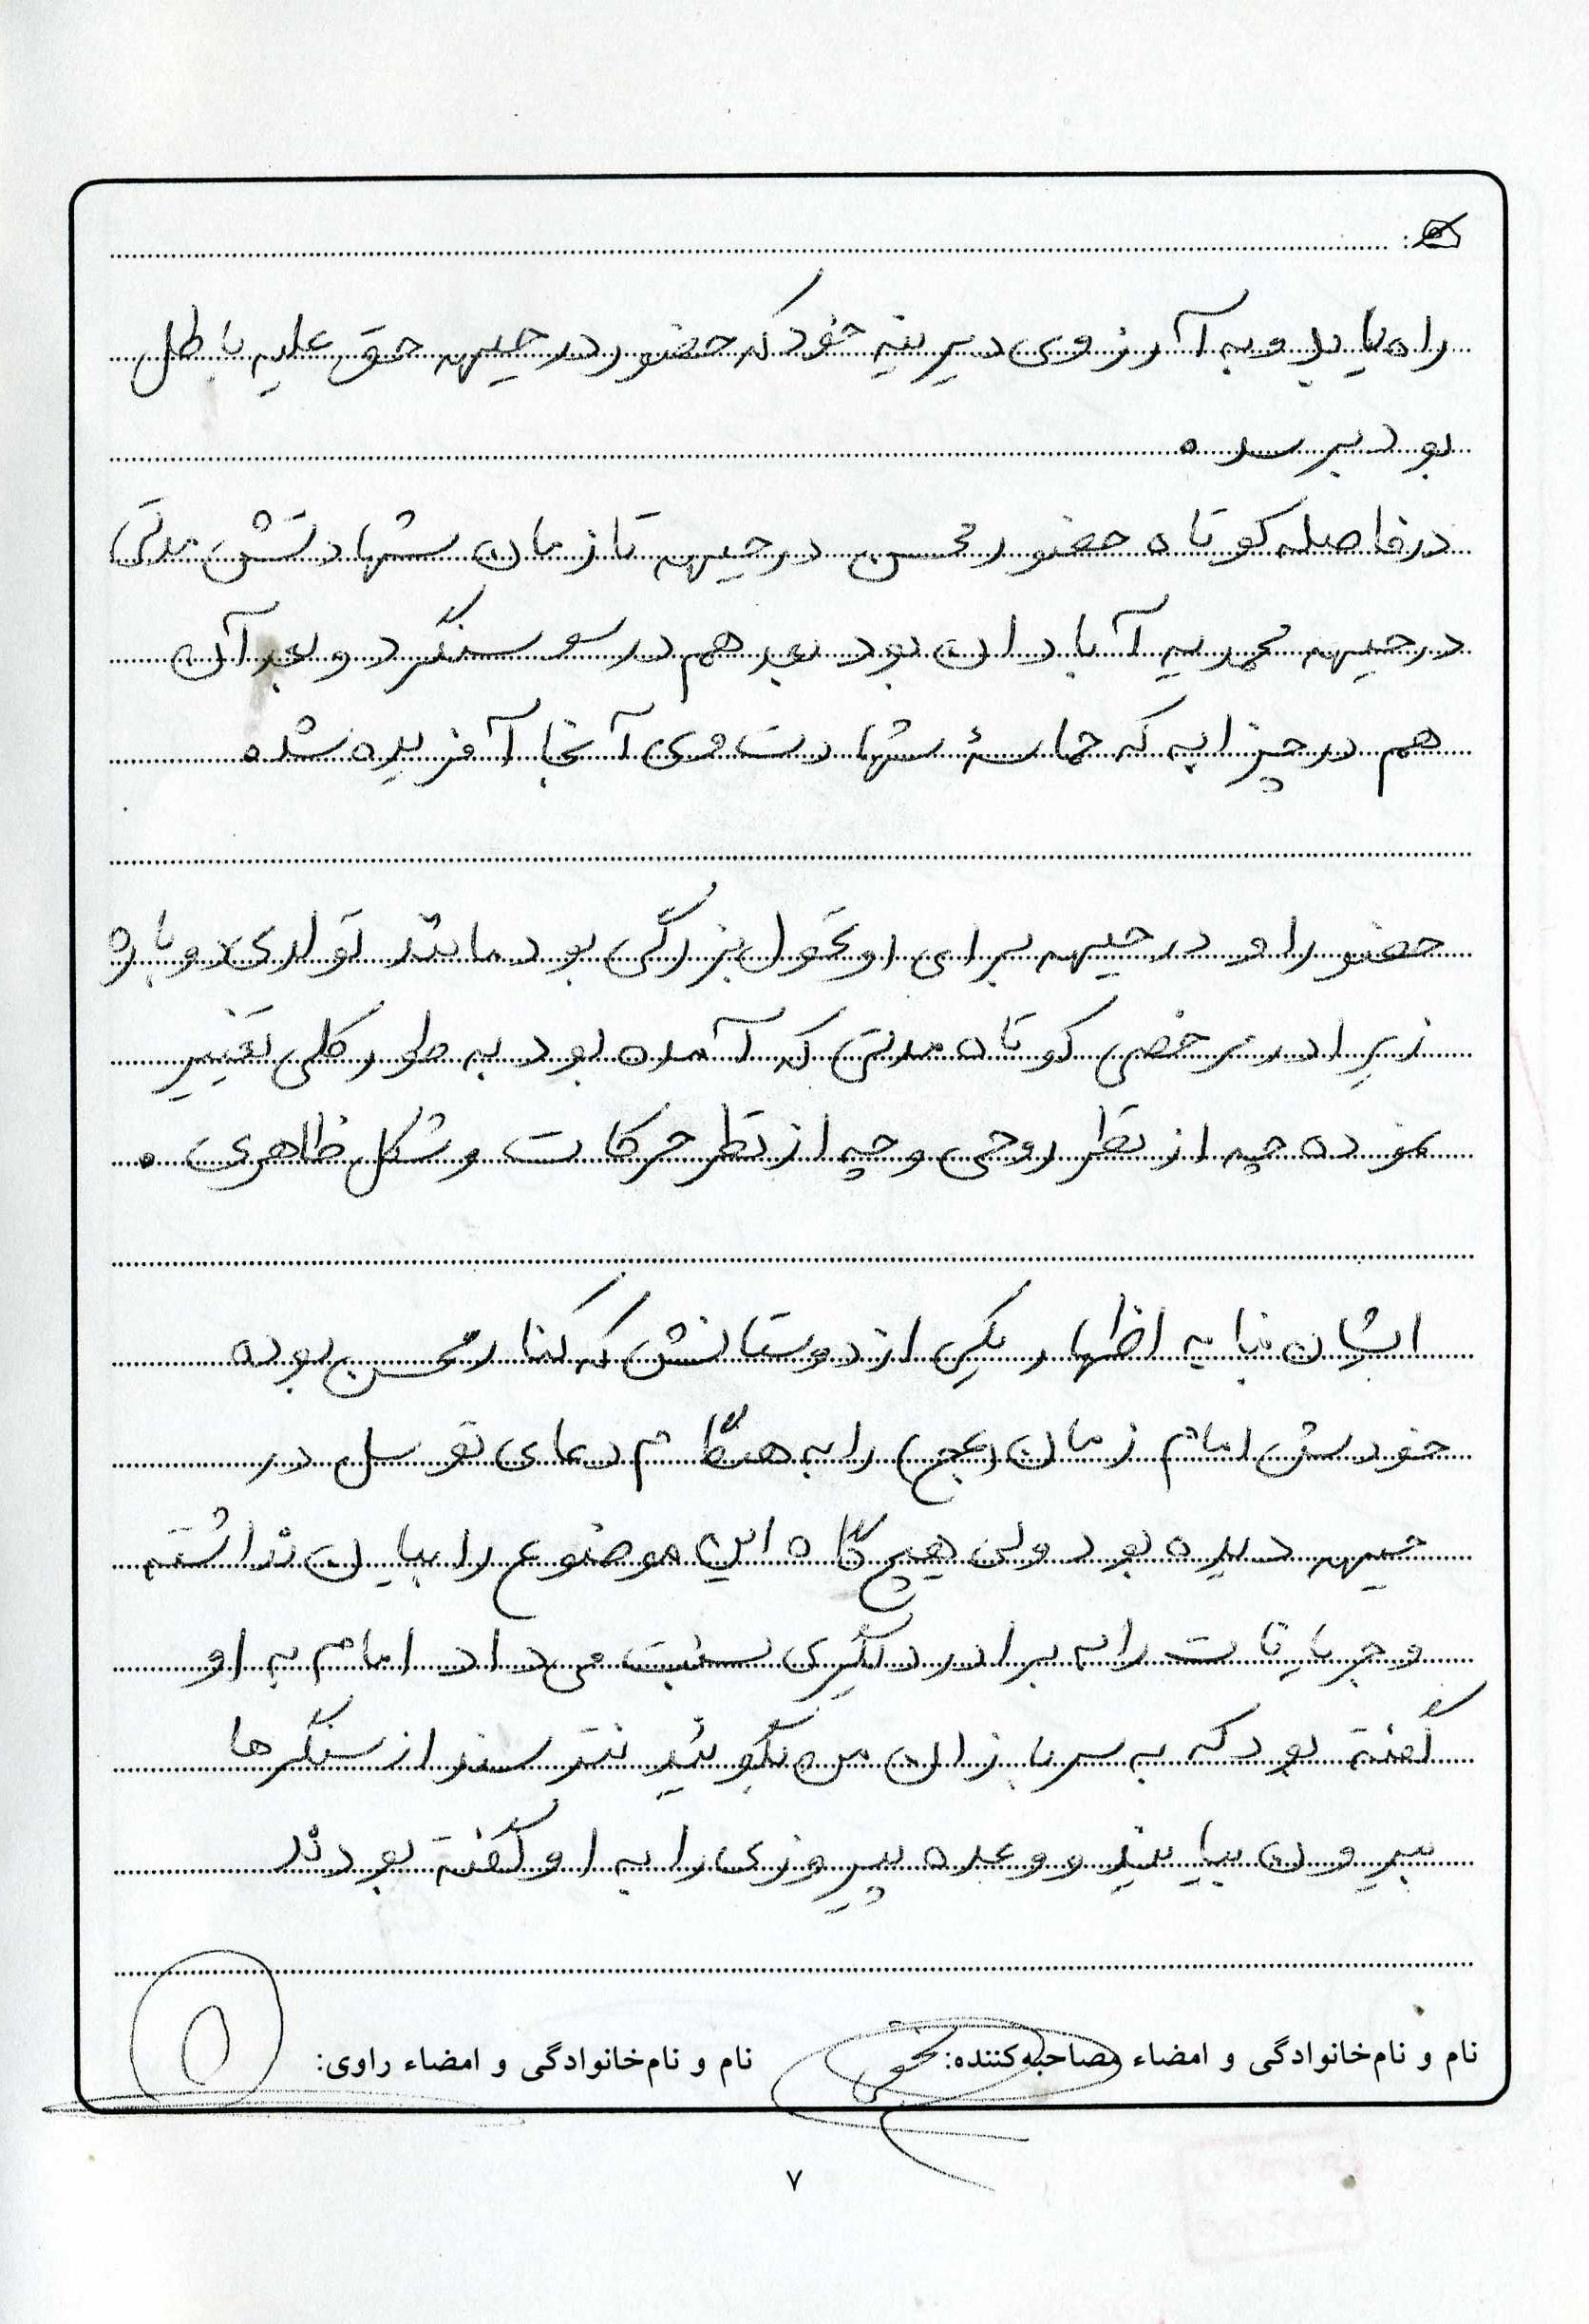 راه یابد و به آرزوی دیرینه خود که حضور در جبهه حق علیه باطل
بود برسد.
در فاصله کوتاه حضور محسن در جبهه تا زمان شهادتش مدتی
در جبهه محمدیه آبادان بود بعد هم در سوسنگرد و بعد آن
هم در چزابه که حماسهٔ شهادت وی آنجا آفریده شده
حضور او در جبهه برای او تحول بزرگی بود مانند تولدی دوباره
زیرا در مرخصی کوتاه مدتی که آمده بود به طور کلی تغییر
نموده چه از نظر روحی و چه از نظر حرکات و شکل ظاهری.
ایشان بنا به اظهار یکی از دوستانش که کنار محسن بوده
خودش امام زمان (عج) را به هنگام دعای توسل در
جبهه دیده بود ولی هیچ گاه این موضوع را بیان نداشته
و جریانات را به برادر دیگری نسبت می داد امام به او
گفته بود که به سربازان من بگوئید نترسند از سنگرها
بیرون بیایند و وعده پیروزی را به او گفته بودند
نام و نام‌خانوادگی و امضاء مصاحبه‌کننده: نام و نام‌خانوادگی و امضاء راوی:
۷